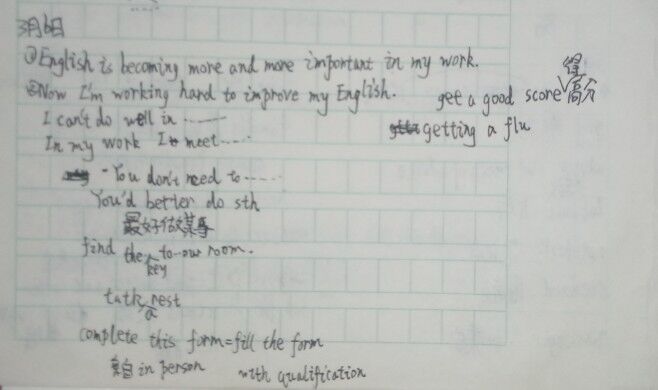 3月6日
①English is becoming more and more important in my work.
②Now I'm working hard to improve my English. get a good score 得高分
I can't do well in ......
getting a flu
In my work I meet .....
"You don't need to .....
You'd better do sth
最好做某事
find the key to our room.
a rest
complete this form=fill the form
亲自 in person with qualification